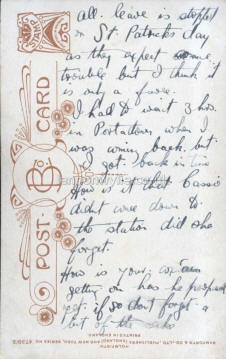 all. leave is stopped
on St. Patricks day
as they expect some
trouble but I think it
is only a farce.
I had to wait 3 hrs.
in Portadown when I
was coming back. but
I got back in time
How is it that Cassie
didnt come down to
the station did she
forget.
How is your cousin
getting on has he proposed
yet; if so dont forget a
bit of the cake
STAMP
POST CARD
B. Co.
BAMFORTH & CO., LTD., PUBLISHERS, HOLMFIRTH (ENGLAND) AND NEW YORK.
PRINTED IN ENGLAND.